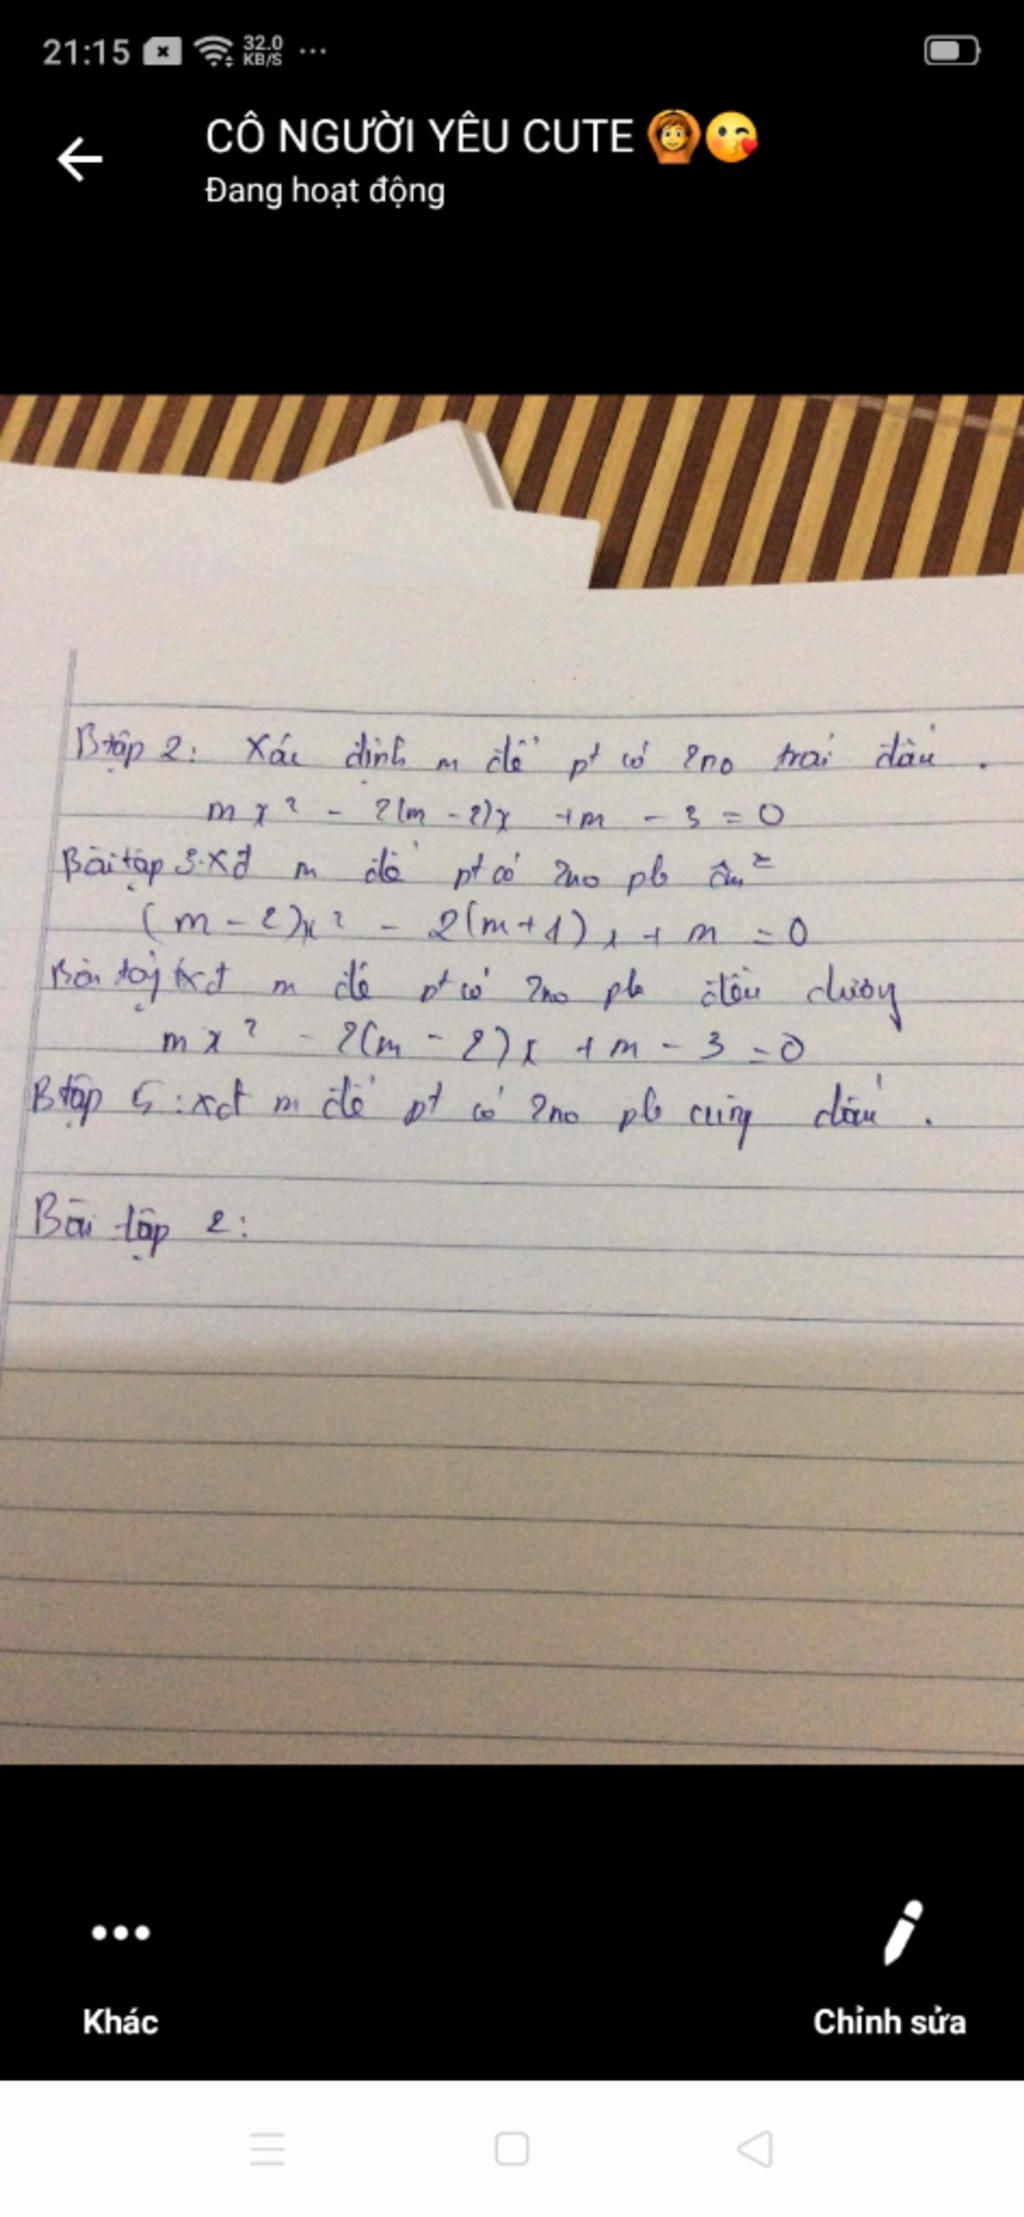 21:15 32.0 KB/S ...
CÔ NGƯỜI YÊU CUTE 🙆😘
Đang hoạt động
Btập 2: Xác định m để pt có 2no trái dấu.
mx² - 2(m - 2)x + m - 3 = 0
Bài tập 3: Xđ m để pt có 2no pb âm
(m - 2)x² - 2(m + 1)x + m = 0
Bài tập xđ m để pt có 2no pb đều dương
mx² - 2(m - 2)x + m - 3 = 0
Btập 5: xđ m để pt có 2no pb cùng dấu.
Bài tập 2:
Khác
Chỉnh sửa